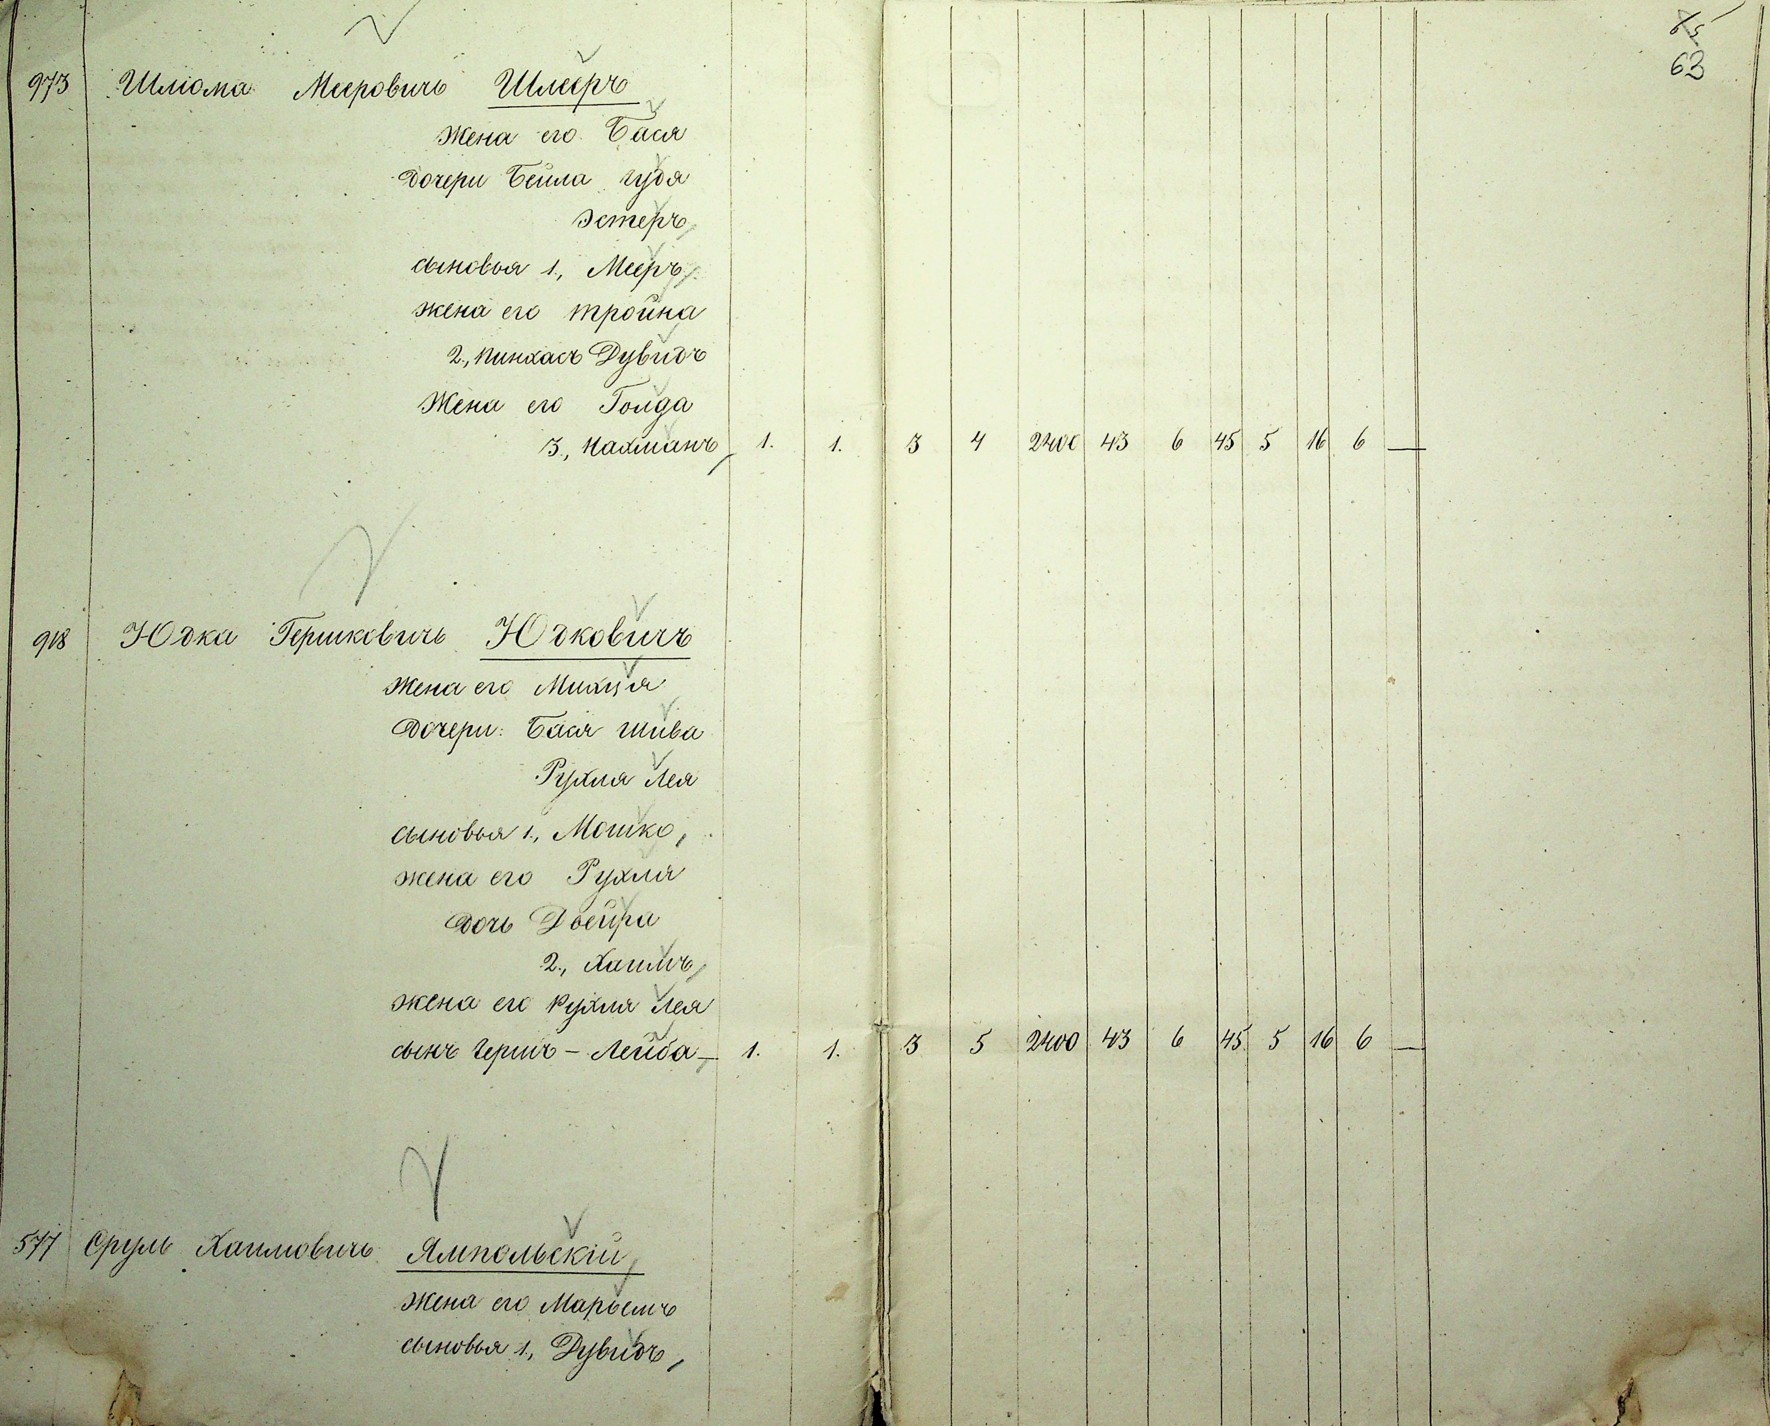 65
63
973 Шлиома Мееровичъ Шлееръ
Жена его Бася
дочери Бейла Гудя
Эстеръ,
сыновья 1., Мееръ,
жена его Тройна
2., Пинхасъ Дувидъ
Жена его Голда
3., Нахманъ, 1. 1. 3 4 2400 43 6 45 5 16 6 —
918 Юдка Гершковичъ Юдковичъ
Жена его
дочери: Бася Шива
Рухля Лея
сыновья 1., Мошко,
жена его Рухля
дочь Двейра
2., Хаимъ,
жена его Рухля Лея
сынъ Гершъ – Лейба, 1. 1. 3 5 2400 43 6 45 5 16 6 —
577 Сруль Хаимовичъ Ямпольскій,
Жена его Марьемъ
сыновья 1., Дувидъ,